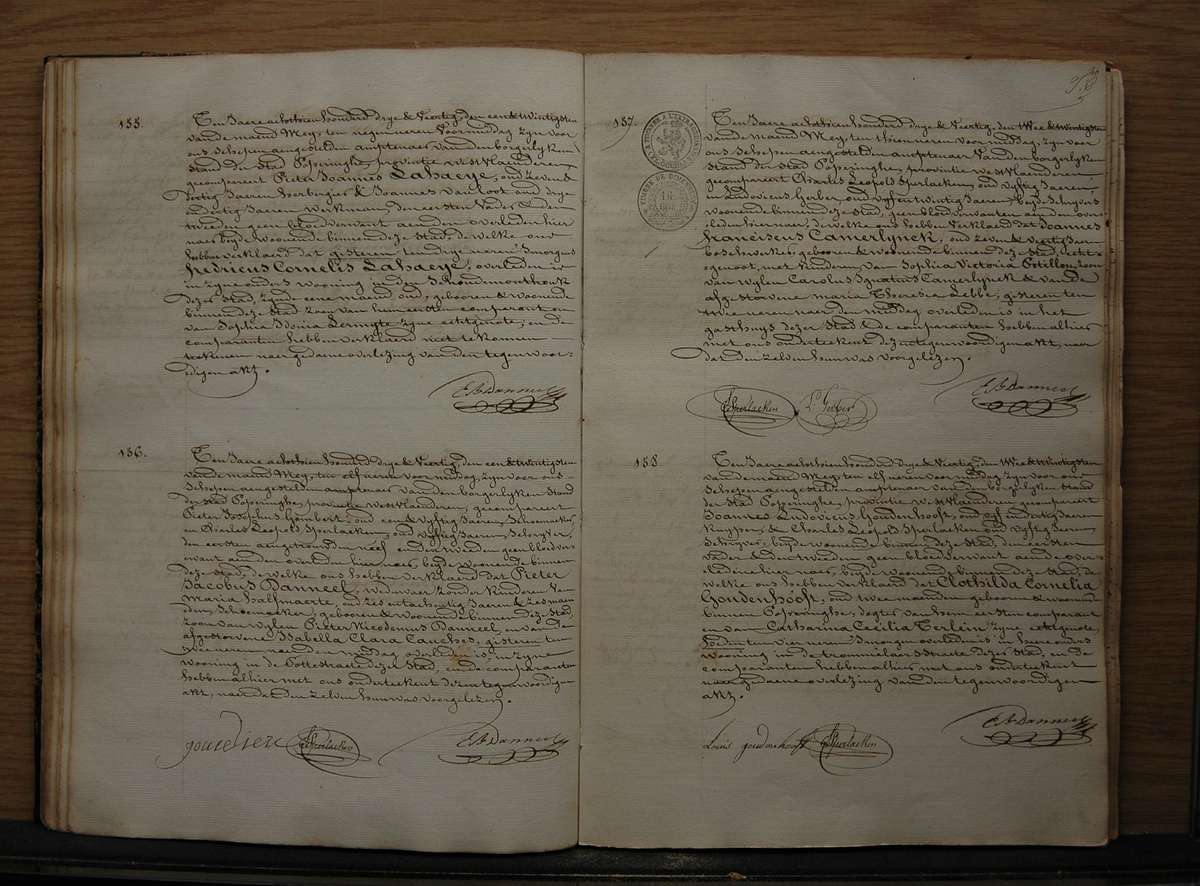 155.
Ten Jaere achthien honderd drye & Veertig, den een & twintigsten
vande maend Mey, ten negen ueren Voormiddag zyn voor
ons schepen aengestelden amptenaer van den borgerlyken
stand der stad Poperinghe, provintie westVlaenderen,
gecompareert Pieter Joannes Lahaeye, oud zeven &
dertig Jaeren herberger & Joannes van Loot oud drye
endertig Jaeren werkman, den eersten Vader & den
tweeden geen bloedverwant aenden overleden hier
naer beyde woonende binnen deze stad, dewelke ons
hebben verklaerd dat gisteren ten dry ueren 's morgens
fredricus Cornelis Lahaeye, overleden is
in zyne ouders wooning in de Schoudemonthouk
dezer stad, zynde eene maend oud, gebooren & woonende
binnen deze stad zoon van hun eersten comparant en
van Sophia Idonia Lermyte zyne echtgenote, en de
comparanten hebben verklaerd niet te konnen
teekenen naer gedaene overlezing van den tegenwoor-
digen akt.
156.
Ten Jaere achthien honderd drye & Veertig, den een & twintigsten
vande maend Mey, ten elf ueren voormiddag, zyn voor ons
schepen aengestelden amptenaer van den borgerlyken stand
der stad Poperinghe, provintie westVlaenderen, gecompareert
Pieter Josephus Gombert, oud een & vyftig Jaeren, schoenmaker
en Charles Leopold Sperlaeken, oud vyftig Jaeren, schryver,
den eersten aengetrouwden neef enden tweeden geen bloedver-
want aenden overleden hier naer, beyde woonende binnen
deze stad, dewelke ons hebben verklaerd dat Pieter
Jacobus Danneel, weduwaer zonder kinderen van
Maria Joalfnaerte, oud zes entachentig Jaeren & zes maen-
den, schoenmaeker, gebooren & woonende binnen deze stad,
zoon van wylen Pieter Nicodemus Danneel, en van de
afgestorvene Isabella Clara Cauches, gisteren ten
twee ueren naer den middag overleden is, in zyne
wooning in de Pottestraete dezer stad, en de comparanten
hebben alhier met ons onderteekent dezen tegenwoordigen
akt, naer dat den zelven hun was voorgelezen.
Sperlaeken
157.
Ten Jaere achthien honderd drye & Veertig, den twee & twintigsten
vande maend Mey, ten thien ueren voormiddag, zyn voor
ons schepen aengestelden amptenaer Vanden borgerlyken
stand der stad Poperinghe, provintie westVlaenderen
gecompareert Charles Leopold Sperlaeken, oud vyftig Jaeren,
en Ludovicus Gerber, oud vyfentwintig Jaeren, beyde schryvers
woonende binnen deze stad, geen bloedverwanten aen den over-
leden hier naer, dewelke ons hebben verklaerd dat Joannes
franciscus Camerlynck, oud zeven & veertig Jaeren
boschwerker, gebooren & woonende binnen deze stad, echt-
genoot, met kinderen, van Sophia Victoria Petillon, zoon
van wylen Carolus Ignatius Camerlynck & van de
afgestorvene maria Theresia Lebbe, gisteren ten
twee ueren naer den middag overleden is in het
gasthuys dezer stad & de comparanten hebben alhier
met ons onderteekent dezen tegenwoordigen akt, naer
dat den zelven hun was voorgelezen.
Sperlaeken
158.
Ten Jaere achthien honderd drye & Veertig, den twee & twintigsten
vande maend Mey, ten elf ueren voormiddag zyn voor ons
schepen aengestelden amptenaer van den borgerlyken stand
der stad Poperinghe, provintie westVlaenderen, gecompareert
Joannes Ludovicus Goudenhooft, oud endertig Jaeren
kuyper, & Charles Leopold Sperlaeken oud vyftig Jaeren,
schryver, beyde woonende binnen deze stad, den eersten
vader & den tweeden geen bloedverwant aen de over-
ledene hier naer, beyde woonende binnen deze stad, de
welke ons hebben verklaerd dat Clothilda Cornelia
Goudenhooft, oud twee maenden gebooren & woonende
binnen Poperinghe, dogter van hunnen eersten comparant
en van Catharina Cecilia Terlein zyne echtgenote,
heden ten vier ueren 's morgens overleden is in haere ouders
wooning in de trommelaersstraete dezer stad, en de
comparanten hebben alhier, met ons onderteekent
naer gedaene overlezing van den tegenwoordigen
akt.
Louis goudenhooft Sperlaeken